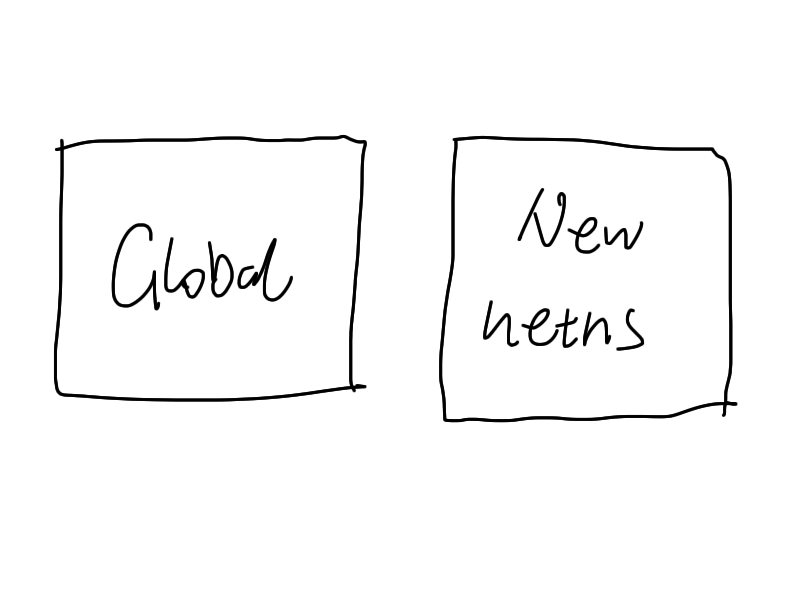 Global
New
netns